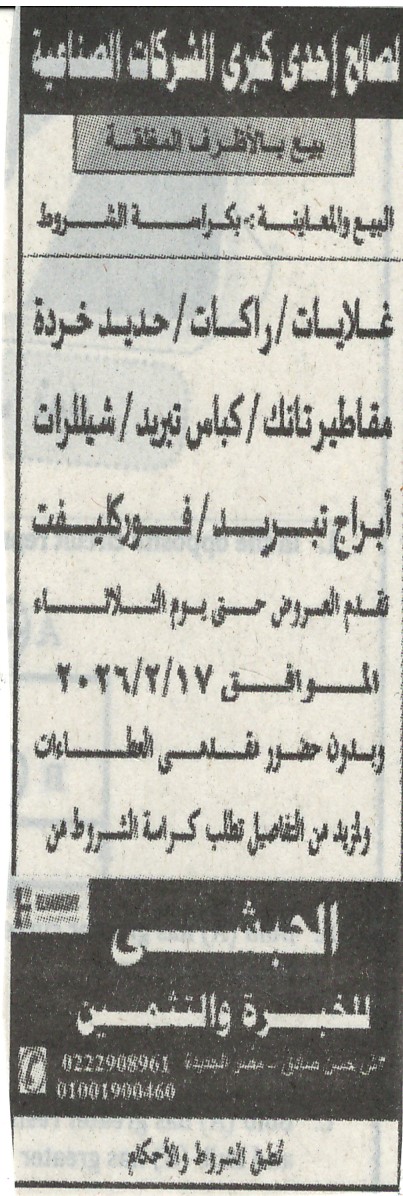 لصالح إحدى كبرى الشركات الصناعية
بيع بالاظرف المغلقة
البيع والمعاينة :- بكراسة الشروط
غلايات / راكات / حديد خردة
مقاطير تانك / كباس تبريد / شيللرات
أبراج تبريد / فوركليفت
تقدم العروض حتى يوم الثلاثاء
الموافق ٢٠٢٦/٢/١٧
وبدون حضور مقدمى العطاءات
ولمزيد من التفاصيل تطلب كراسة الشروط من
الحبشى
للخبرة والتثمين
ش حسن صادق - مصر الجديدة 0222908961
01001900460
تطبق الشروط والأحكام